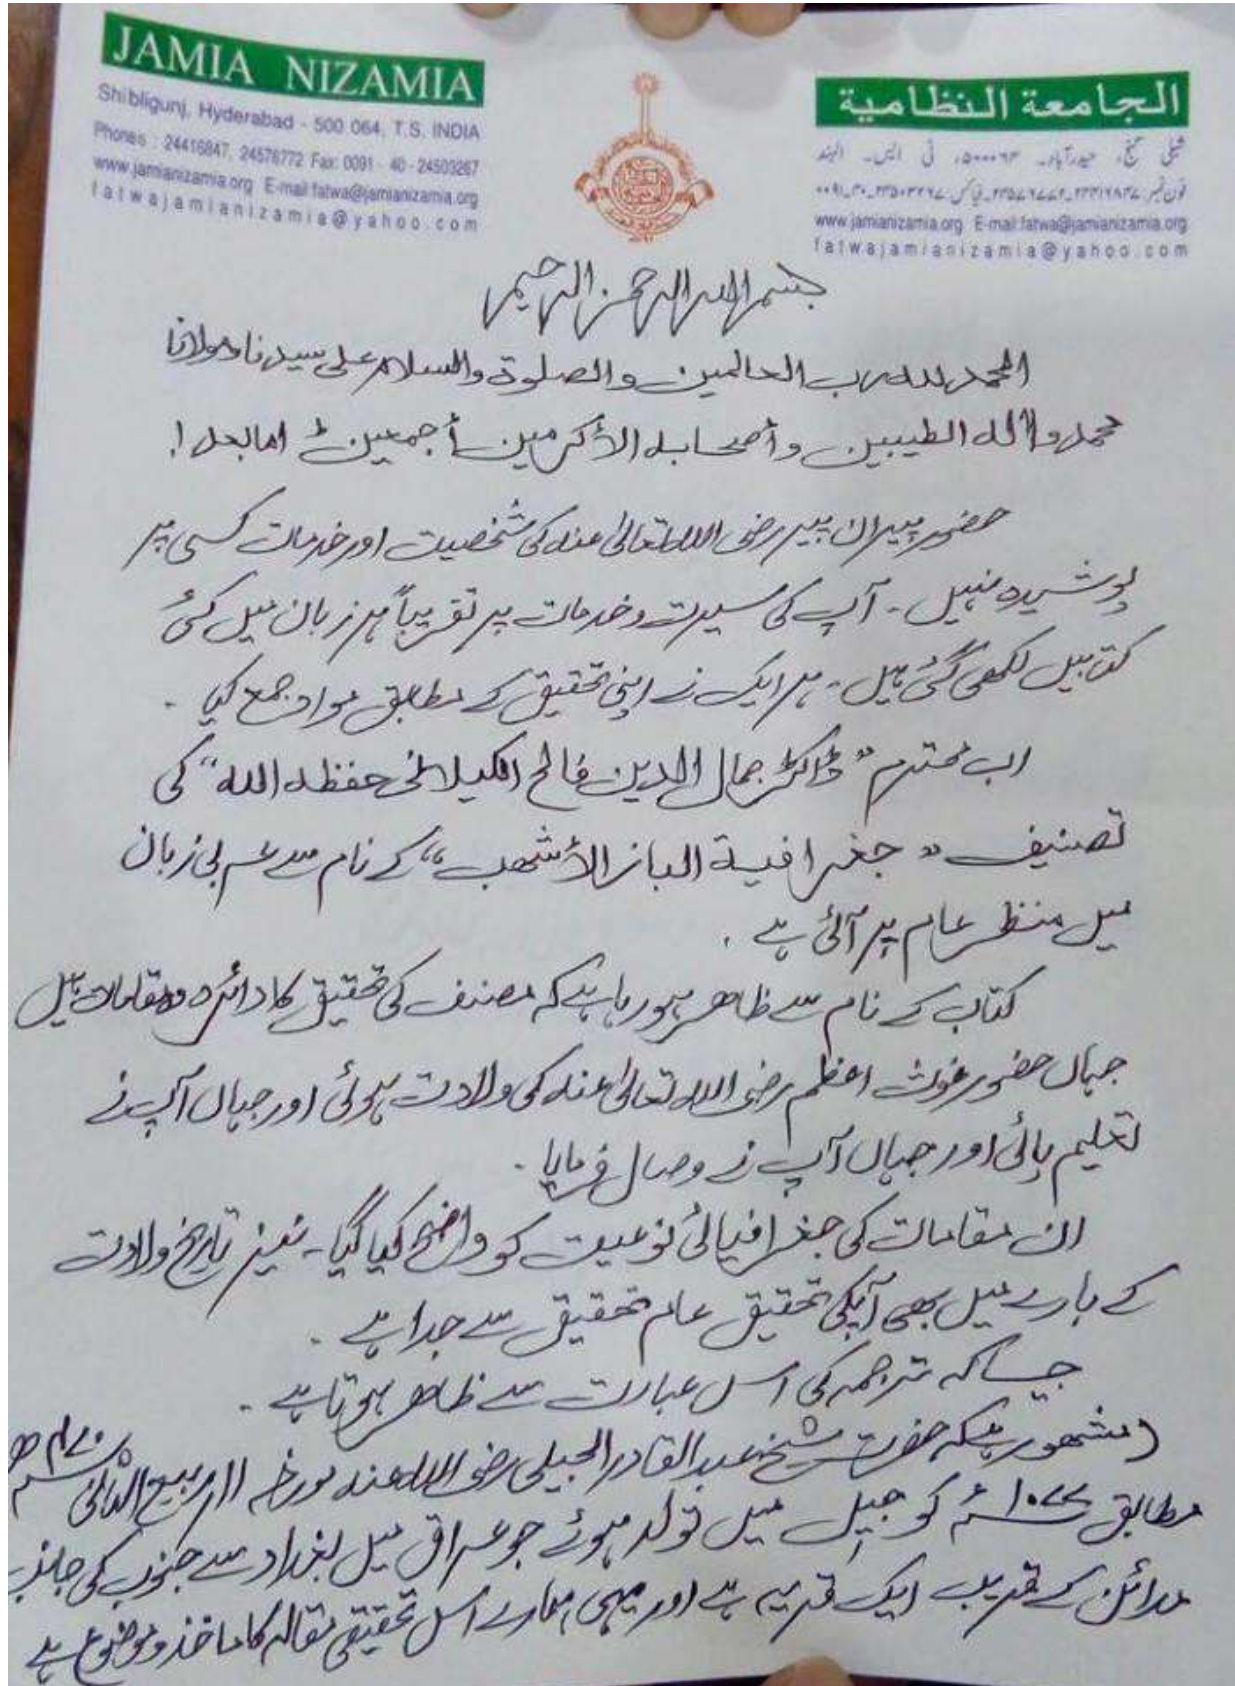 JAMIA NIZAMIA
Shibligunj, Hyderabad - 500 064, T.S. INDIA
Phones : 24416847, 24576772 Fax: 0091 - 40 - 24503267
www.jamianizamia.org E-mail:fatwa@jamianizamia.org
fatwajamianizamia@yahoo.com
الجامعة النظامية
شبلی گنج، حیدرآباد۔ ۵۰۰۰۶۴، ٹی ایس۔ الہند
فون نمبر: ۲۴۴۱۶۸۴۷۔۲۴۵۷۶۷۷۲ فیاکس: ۲۴۵۰۳۲۶۷۔۴۰۔۰۰۹۱
www.jamianizamia.org E-mail:fatwa@jamianizamia.org
fatwajamianizamia@yahoo.com
بسم الله الرحمن الرحيم
الحمد لله رب العالمين والصلوة والسلام على سيدنا ومولانا
محمد وآله الطيبين وأصحابه الأكرمين أجمعين اما بعد!
حضور پیران پیر رضی اللہ تعالیٰ عنہ کی شخصیت اور خدمات کسی پر
پوشیدہ نہیں۔ آپ کی سیرت و خدمات پر تقریباً ہر زبان میں کئی
کتابیں لکھی گئی ہیں۔ ہر ایک نے اپنی تحقیق کے مطابق مواد جمع کیا۔
اب محترم "ڈاکٹر جمال الدین فالح الکیلانی حفظہ اللہ" کی
تصنیف "جغرافیة الباز الأشهب" کے نام سے عربی زبان
میں منظر عام پر آئی ہے۔
کتاب کے نام سے ظاھر ہو رہا ہے کہ مصنف کی تحقیق کا دائرہ وہ مقامات ہیں
جہاں حضور غوث اعظم رضی اللہ تعالیٰ عنہ کی ولادت ہوئی اور جہاں آپ نے
تعلیم پائی اور جہاں آپ نے وصال فرمایا۔
ان مقامات کی جغرافیائی نوعیت کو واضح کیا گیا۔ نیز تاریخ ولادت
کے بارے میں بھی آپکی تحقیق عام تحقیق سے جدا ہے۔
جیسا کہ ترجمہ کی اس عبارت سے ظاھر ہوتا ہے۔
(مشھور ہیکہ حضرت شیخ عبدالقادر الجیلی رضی اللہ عنہ مورخہ ۱۱ ربیع الثانی ۴۷۰ھ
مطابق ۱۰۷۷ء کو جیل میں تولد ہوئے جو عراق میں بغداد سے جنوب کی جانب
مدائن کے قریب ایک قریہ ہے اور یہی ہمارے اس تحقیقی مقالہ کا ماخذ و موضوع ہے